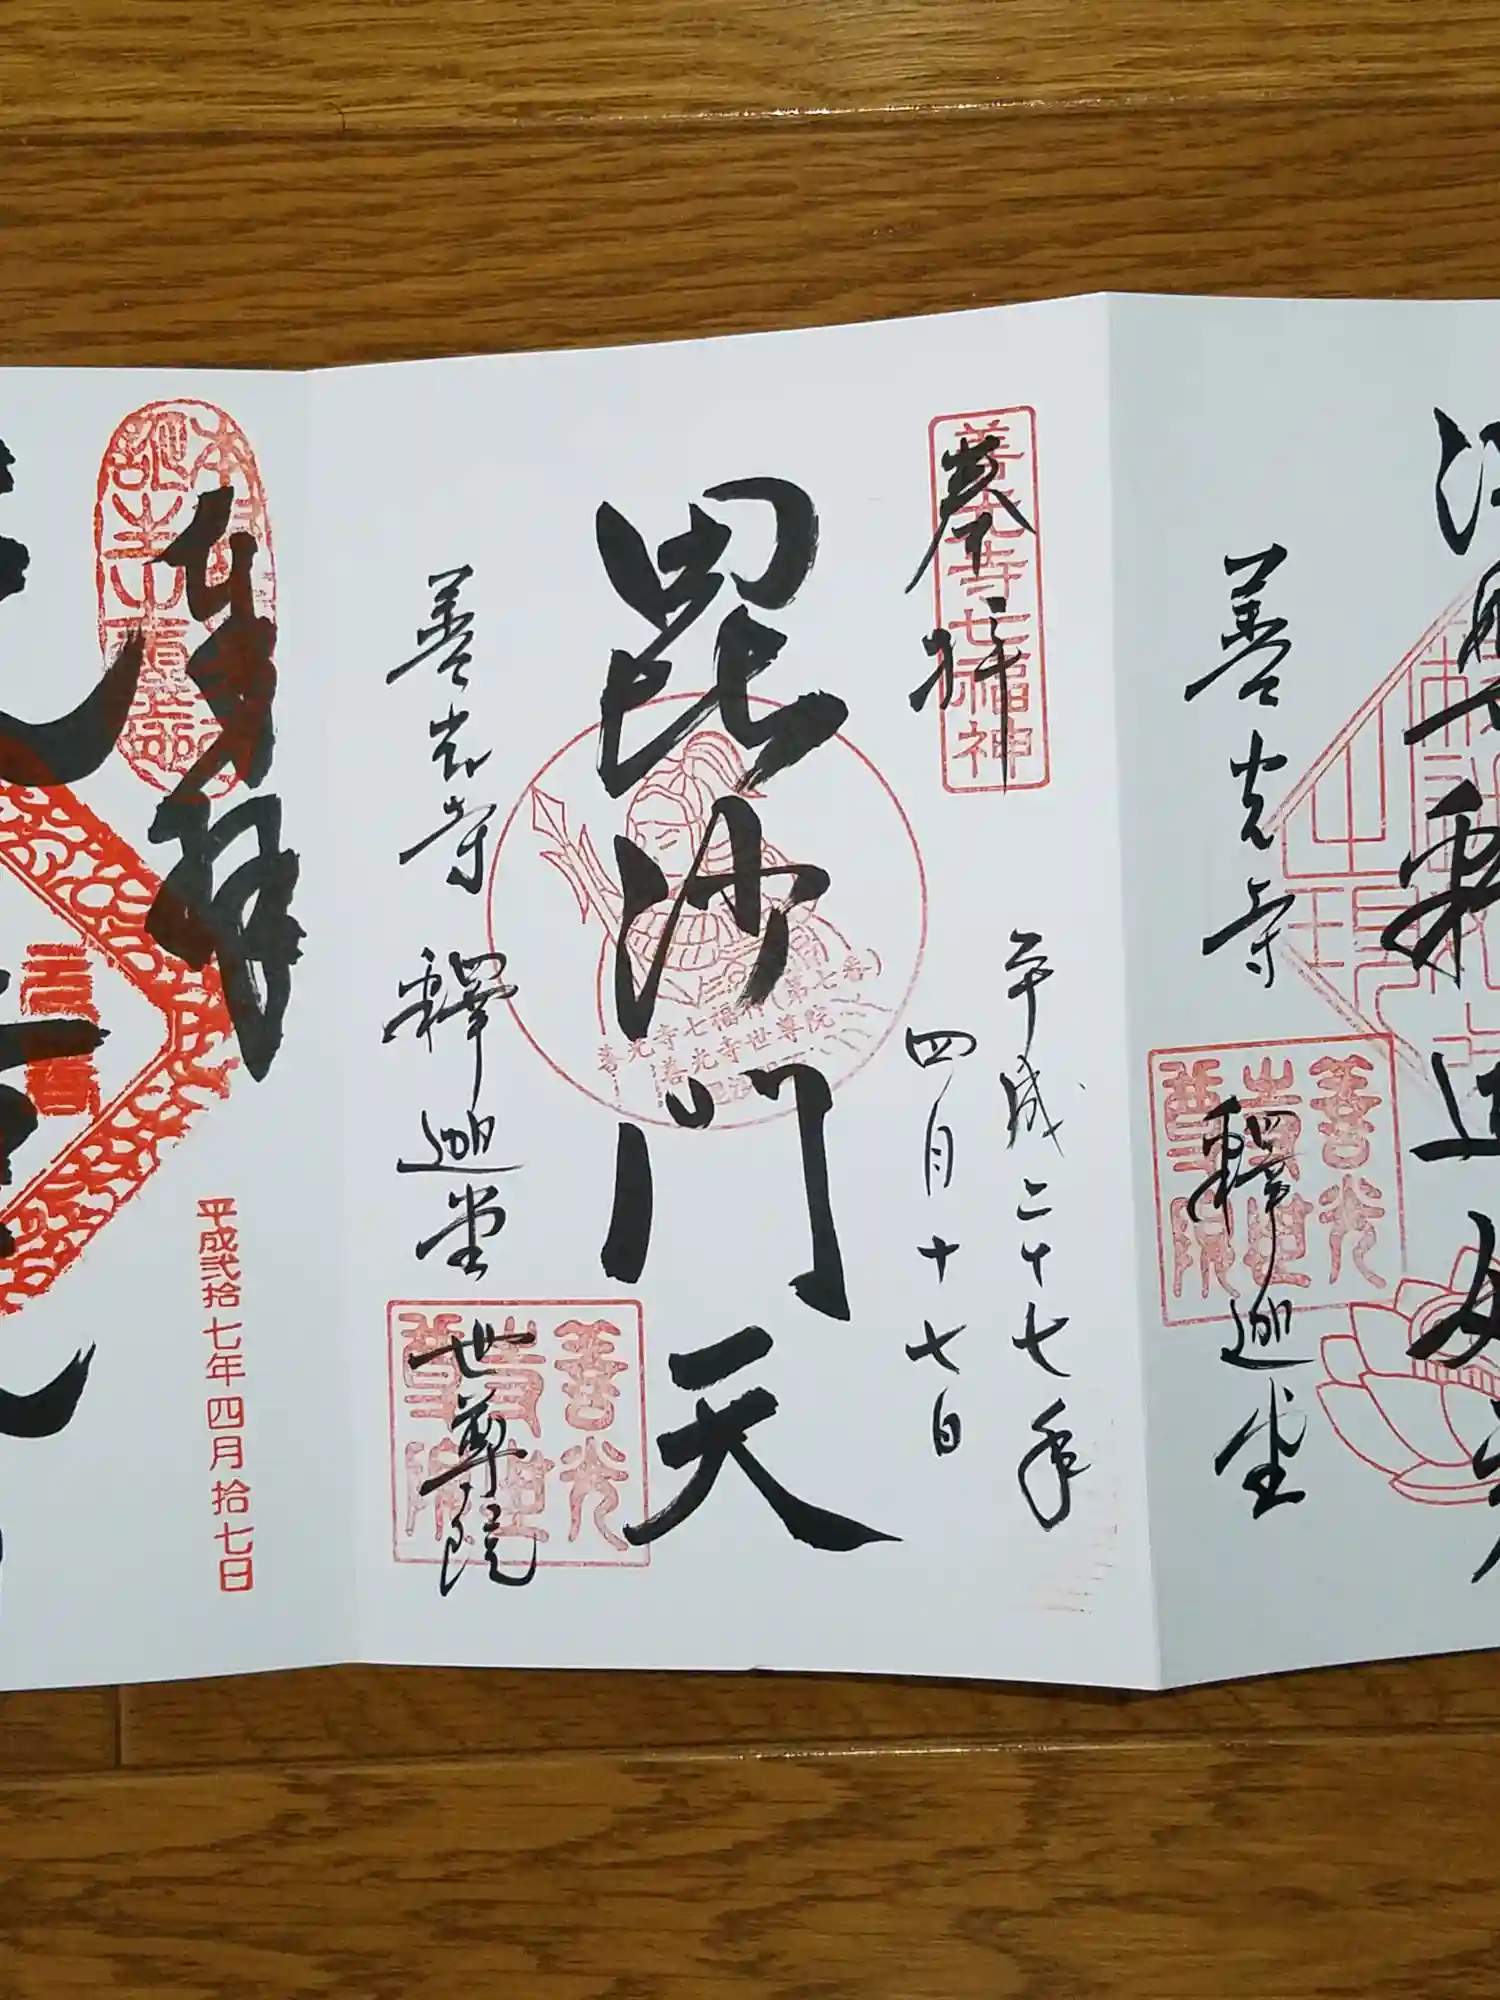 善光寺
釋迦堂
善光寺世尊院
奉拝
善光寺七福神
平成二十七年
四月十七日
毘沙門天
善光寺七福神(第七番)
善光寺世尊院
善光寺 釋迦堂
世尊院
善光寺世尊院
奉拝
平成弐拾七年四月拾七日